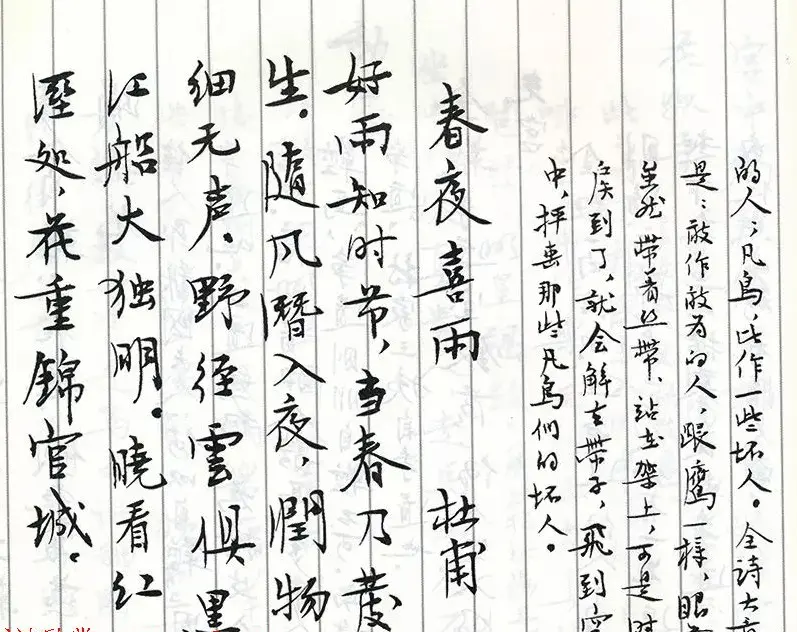 的人；凡鸟，比作一些坏人。全诗大意
是：敢作敢为的人，跟鹰一样，眼
虽然带着丝带，站在架上，可是时
候到了，就会解去带子，飞到空
中，抨击那些凡鸟们的坏人。
春夜喜雨 杜甫
好雨知时节，当春乃發
生。随风潛入夜，潤物
细无声。野径雲俱黑
江船大独明。曉看红
溼处，花重錦官城。